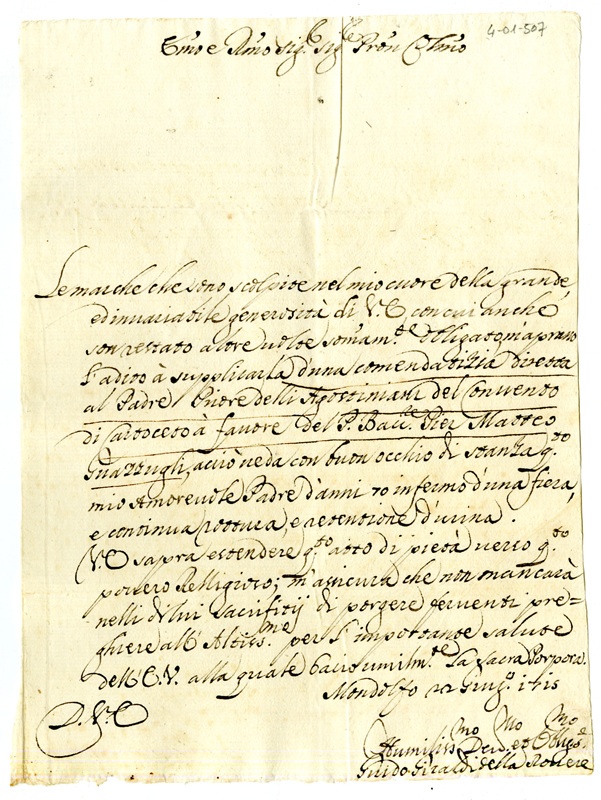 4-01-507
Emo e Rmo Sig.r Sig.re Pron Colmo
Le marche che sono scolpite nel mio cuore della grande,
ed invariabile generosità di V.E con cui anche
son restato altre volte somam.te obligato, m'aprano
l'adito à supplicarla d'una comendatizia diretta
al Padre Priore delli Agostiniani del Convento
di Cartoceto à favore del P. Bacc.re Pier Matteo
Guazzugli, acciò veda con buon occhio di stanza q.to
mio Amorevole Padre d'anni 70 infermo d'una fiera,
e continua rottura, e retentione d'urina.
V.E saprà estendere q.to atto di pietà verso q.to
povero Relligioso; m'assicura che non mancarà
nelli di lui sacrifitij di porgere ferventi pre=
ghiere all' Altiss.mo per l'importante salute
dell' E.V. alla quale bacio umilm.te la Sacra Porpora.
Mondolfo 22 Giug.o 1715
D. V.E
Humiliss.mo Dev.mo et Oblig.mo
Guido Giraldi della Rovere